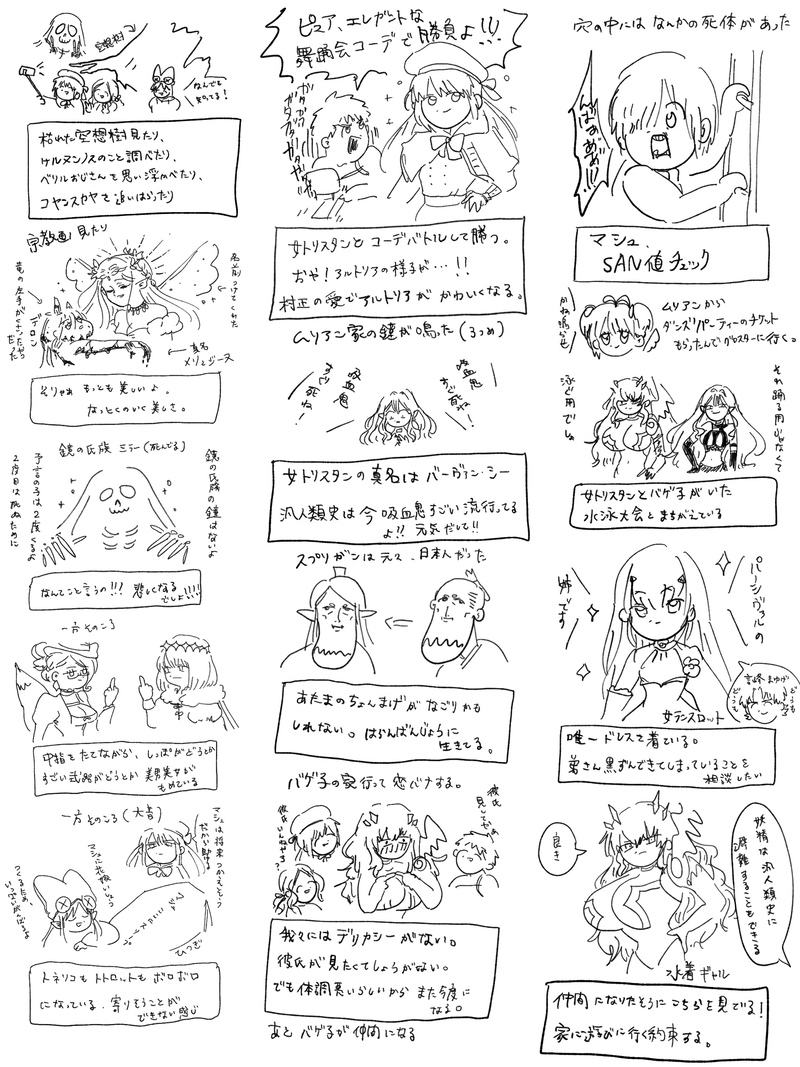 穴の中にはなんかの死体があった
マシュ、
SAN値チェック
かね鳴らせ
ムリアンから
ダンスパーティーのチケット
もらったんでグロスターに行く。
泳ぐ用でしょ
それ踊る用じゃなくて
女トリスタンとバゲ子がいた
水泳大会とまちがえている
パーシヴァルの
姉です
女ランスロット
唯一ドレスで着ている。
弟さん黒ずんできてしまっていることを
相談したい
妖精は汎人類史に
避難することもできる
良き
水着ギャル
仲間になりたそうにこちらを見てる!
家にあそびに行く約束する。
ピュア、エレガントな
舞踊会コーデで勝負よ!!!
ガタガタガタガタ
女トリスタンとコーデバトルして勝つ。
おや!アルトリアの様子が…!!
村正の愛でアルトリアがかわいくなる。
ムリアン家の鐘が鳴った(3つめ)
吸血鬼
すぐ死ね!
吸血鬼
すぐ死ね!
女トリスタンの真名はバーヴァン・シー
汎人類史は今吸血鬼すごい流行ってる
よ!!元気だして!!
スプリガンは元々、日本人だった
あたまのちょんまげがなごりかも
しれない。はらんばんじょうに
生きてる。
バゲ子の家行って恋バナする。
彼氏いるんやろ?
彼氏
見してや
我々にはデリカシーがない。
彼氏が見たくてしょうがない。
でも体調悪いらしいからまた今度に
なる。
あとバゲ子が仲間になる
空想樹
なんでも
知ってる!
枯れた空想樹見たり、
ケルヌンノスのこと調べたり、
ベリルおじさんを思い浮かべたり、
コヤンスカヤを追いはらったり
宗教画見たり
竜の左手がくさったやつだった
名前つけてくれた
真名
メリュジーヌ
そりゃあもっとも美しいよ。
なっとくのいく美しさ。
鏡の氏族 ミラー(死んでる)
予言の子は2度くるよ
2度目は死ぬために
鏡の氏族の鐘はないよ
なんてこと言うの!!!悲しくなる
でしょ!!!!
一方そのころ
中指をたてながら、しっぽがどうとか
すごい武器がどうとか美男美女が
もめている
一方そのころ(大昔)
マシュに花板いう
ひつぎ
トネリコもトトロットもボロボロ
になっている。寄りそうことが
できない感じ